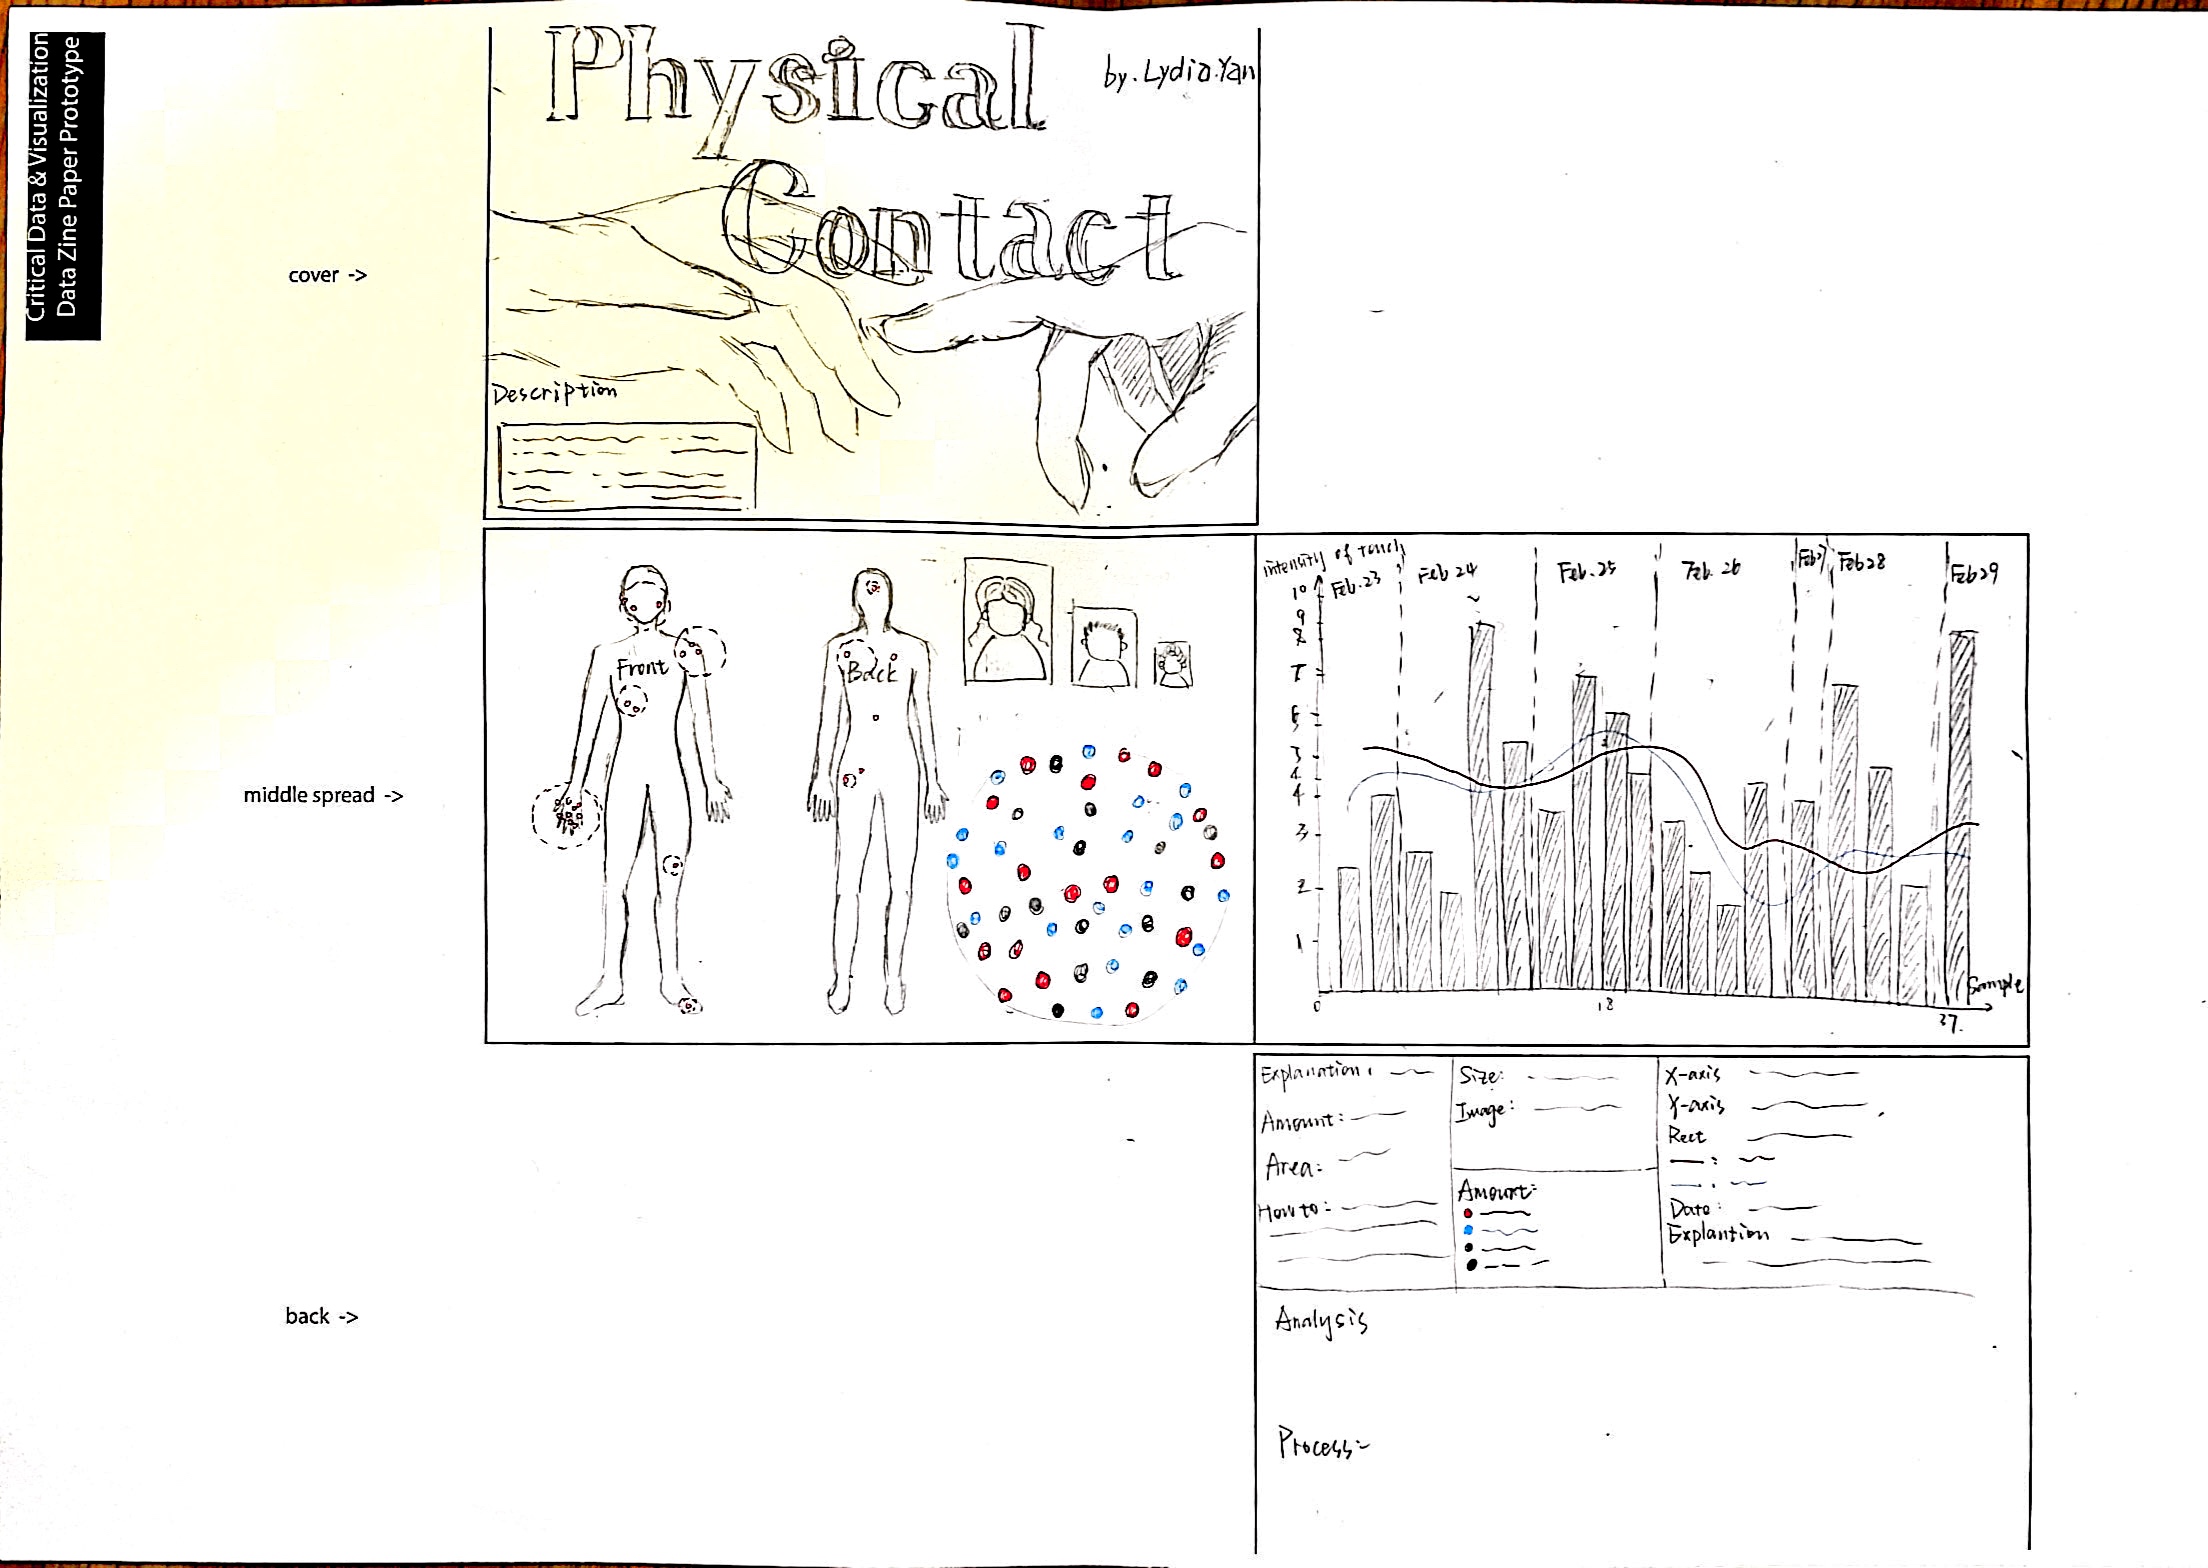 Critical Data & Visualization
Data Zine Paper Prototype
Physical
by. Lydia Yan
Contact
cover ->
Description
middle spread ->
Front
Back
intensity of touch
Feb. 23
Feb 24
Feb. 25
Feb. 26
Feb 27
Feb 28
Feb 29
10
9
8
7
6
5
3
4
4
3
2
1
0
18
37.
Sample
back ->
Explanation:
Amount:
Area:
How to:
Size:
Image:
Amount:
X-axis
Y-axis
Rect
Date:
Explantion
Analysis
Process: